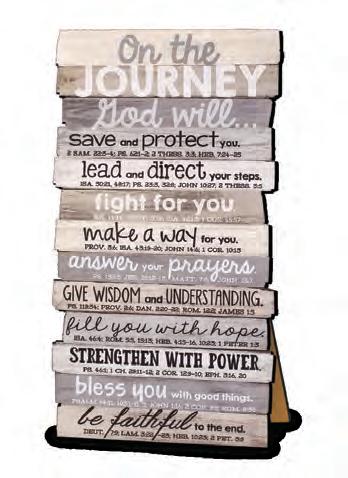 On the
JOURNEY
God will...
save and protect you.
2 SAM. 22:3-4; PS. 62:1-2; 2 THESS. 3:3; HEB. 7:24-25
lead and direct your steps.
ISA. 30:21, 48:17; PS. 23:3, 32:8; JOHN 10:27; 2 THESS. 3:5
fight for you.
make a way for you.
PROV. 3:6; ISA. 43:19-20; JOHN 14:6; 1 COR. 10:13
answer your prayers.
GIVE WISDOM and UNDERSTANDING.
PS. 119:34; PROV. 2:6; DAN. 2:20-22; ROM. 12:2; JAMES 1:5
fill you with hope.
ISA. 46:4; ROM. 5:5, 15:13; HEB. 4:15-16, 10:23; 1 PETER 1:3
STRENGTHEN WITH POWER.
PS. 46:1; 1 CH. 29:11-12; 2 COR. 12:9-10; EPH. 3:16, 20
bless you with good things.
be faithful to the end.
DEUT. 7:9; LAM. 3:22-23; HEB. 10:23; 2 PET. 3:9